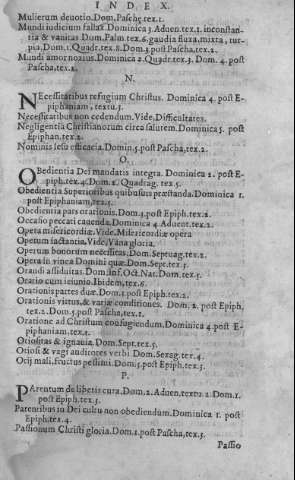 INDEX.
Mulierum deuotio.Dom.Pasche.tex.1.
Mundi iudicium fallax Dominica 3.Aduen.tex.1. inconstan-
tia & vanitas Dom.Palm tex.6.gaudia fluxa, mixta, tur-
pia,Dom.1.Quadr.tex.8.Dom.3 post Pascha,tex.2.
Mundi amor noxius.Dominica 2.Quadr.tex.3. Dom.4. post
Pascha,tex.2.
N.
NEcessitatibus refugium Christus. Dominica 4. post E-
piphaniam, textu.3.
Necessitatibus non cedendum.Vide,Difficultates.
Negligentia Christianorum circa salutem.Dominica 5. post
Epiphan.tex.2.
Nominis Iesu efficacia.Domin.5.post Pascha,tex.2.
O.
OBedientia Dei mandatis integra. Dominica 2. post E-
piph.tex.4.Dom.2. Quadrag.tex.5.
Obedientia Superioribus quibusuis præstanda.Dominica 1.
post Epiphaniam,tex.5.
Obedientia pars orationis.Dom.3.post Epiph.tex.2.
Occasio peccati cauenda.Dominica 4 Aduent.tex.2.
Opera misericordiæ.Vide,Misericordiæ opera
Operum iactantia,Vide,Vana gloria.
Operum bonorum necessitas.Dom.Septuag.tex.2.
Opera in vinea Domini quæ.Dom.Sept.tex.5.
Orandi assiduitas.Dom.inf.Oct.Nat.Dom.tex.5.
Oratio cum ieiunio.Ibidem,tex.6.
Orationis partes duæ.Dom.3.post Epiph.tex.2.
Orationis virtus,& variæ conditiones. Dom. 2. post Epiph.
tex.2.Dom.5.post Pascha,tex.1.
Oratione ad Christum confugiendum.Dominica 4.post E-
piphaniam.tex.3.
Otiositas & ignauia.Dom.Sept.tex.5.
Otiosi & vagi auditores verbi Dom.Sexag.ter.4.
Otij mali,fructus pessimi.Dom.5.post Epiph.tex.3.
P.
PArentum de liberis cura.Dom.2.Aduen.textu.2.Dom.1.
post Epiph.tex.5.
Parentibus in Dei cultu non obediendum.Dominica 1. post
Epiph.tex.4.
Passionum Christi gloria.Dom.1.post Pascha,tex.5.
Passio